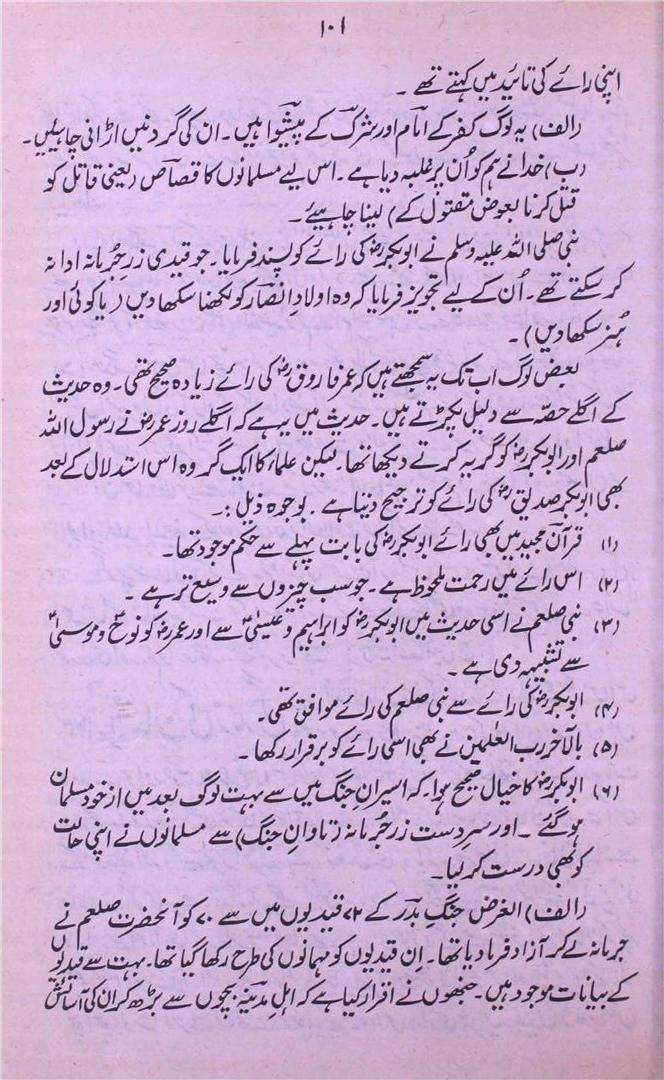 ۱۰۱
اپنی رائے کی تائید میں کہتے تھے ۔
(الف) یہ لوگ کفر کے امام اور شرک کے پیشوا ہیں۔ ان کی گردنیں اڑانی چاہیئیں۔
(ب) خدا نے ہم کو اُن پر غلبہ دیا ہے۔ اس لیے مسلمانوں کا قصاص (یعنی قاتل کو
قتل کرنا بعوض مقتول کے) لینا چاہیئے ۔
نبی صلی اللہ علیہ وسلم نے ابوبکرؓ کی رائے کو پسند فرمایا۔ جو قیدی زرِ جُرمانہ ادا نہ
کر سکتے تھے۔ اُن کے لیے تجویز فرمایا کہ وہ اولادِ انصار کو لکھنا سکھا دیں (یا کوئی اور
ہُنر سکھا دیں) ۔
بعض لوگ اب تک یہ سمجھتے ہیں کہ عمر فاروقؓ کی رائے زیادہ صحیح تھی۔ وہ حدیث
کے اگلے حصّہ سے دلیل پکڑتے ہیں۔ حدیث میں یہ ہے کہ اگلے روز عمرؓ نے رسول اللہ
صلعم اور ابوبکرؓ کو گریہ کرتے دیکھا تھا۔ لیکن علماء کا ایک گروہ اس استدلال کے بعد
بھی ابوبکر صدیقؓ کی رائے کو ترجیح دیتا ہے ۔ بوجوہ ذیل :۔
(۱) قرآن مجید میں بھی رائے ابوبکرؓ کی بابت پہلے سے حکم موجود تھا۔
(۲) اس رائے میں رحمت ملحوظ ہے۔ جو سب چیزوں سے وسیع تر ہے ۔
(۳) نبی صلعم نے اسی حدیث میں ابوبکرؓ کو ابراہیمؑ و عیسٰیؑ سے اور عمرؓ کو نوحؑ و موسیٰؑ
سے تشبیہہ دی ہے ۔
(۴) ابوبکرؓ کی رائے سے نبی صلعم کی رائے موافق تھی۔
(۵) بالآخر رب العٰلمین نے بھی اسی رائے کو برقرار رکھا ۔
(۶) ابوبکرؓ کا خیال صحیح ہوا۔ کہ اسیرانِ جنگ میں سے بہت لوگ بعد میں از خود مسلمان
ہو گئے ۔ اور سرِدست زرِ جُرمانہ (تاوانِ جنگ) سے مسلمانوں نے اپنی حالت
کو بھی درست کر لیا۔
(الف) الغرض جنگِ بدر کے ۷۲ قیدیوں میں سے ۷۰ کو آنحضرت صلعم نے
جرمانہ لے کر آزاد فرما دیا تھا۔ اِن قیدیوں کو مہمانوں کی طرح رکھا گیا تھا۔ بہت سے قیدیوں
کے بیانات موجود ہیں۔ جنھوں نے اقرار کیا ہے کہ اہلِ مدینہ بچوں سے بڑھ کر ان کی آسائش